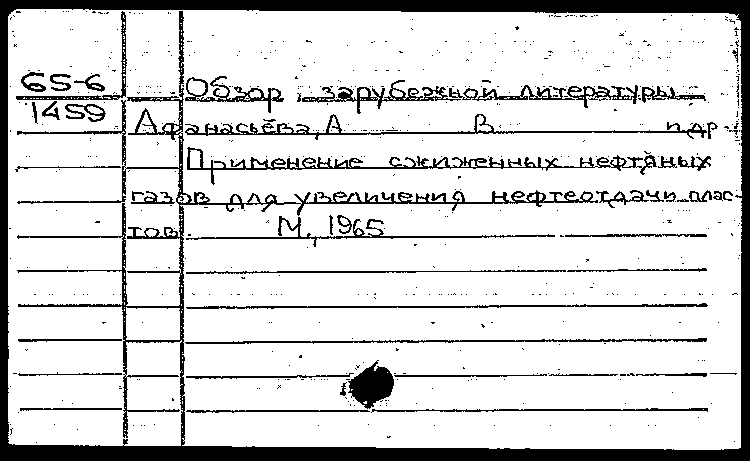 65-6
1459
Обзор зарубежной литературы
Афанасьева, А В и др
Применение сжиженных нефтяных
газов для увеличения нефтеотдачи плас-
тов М., 1965